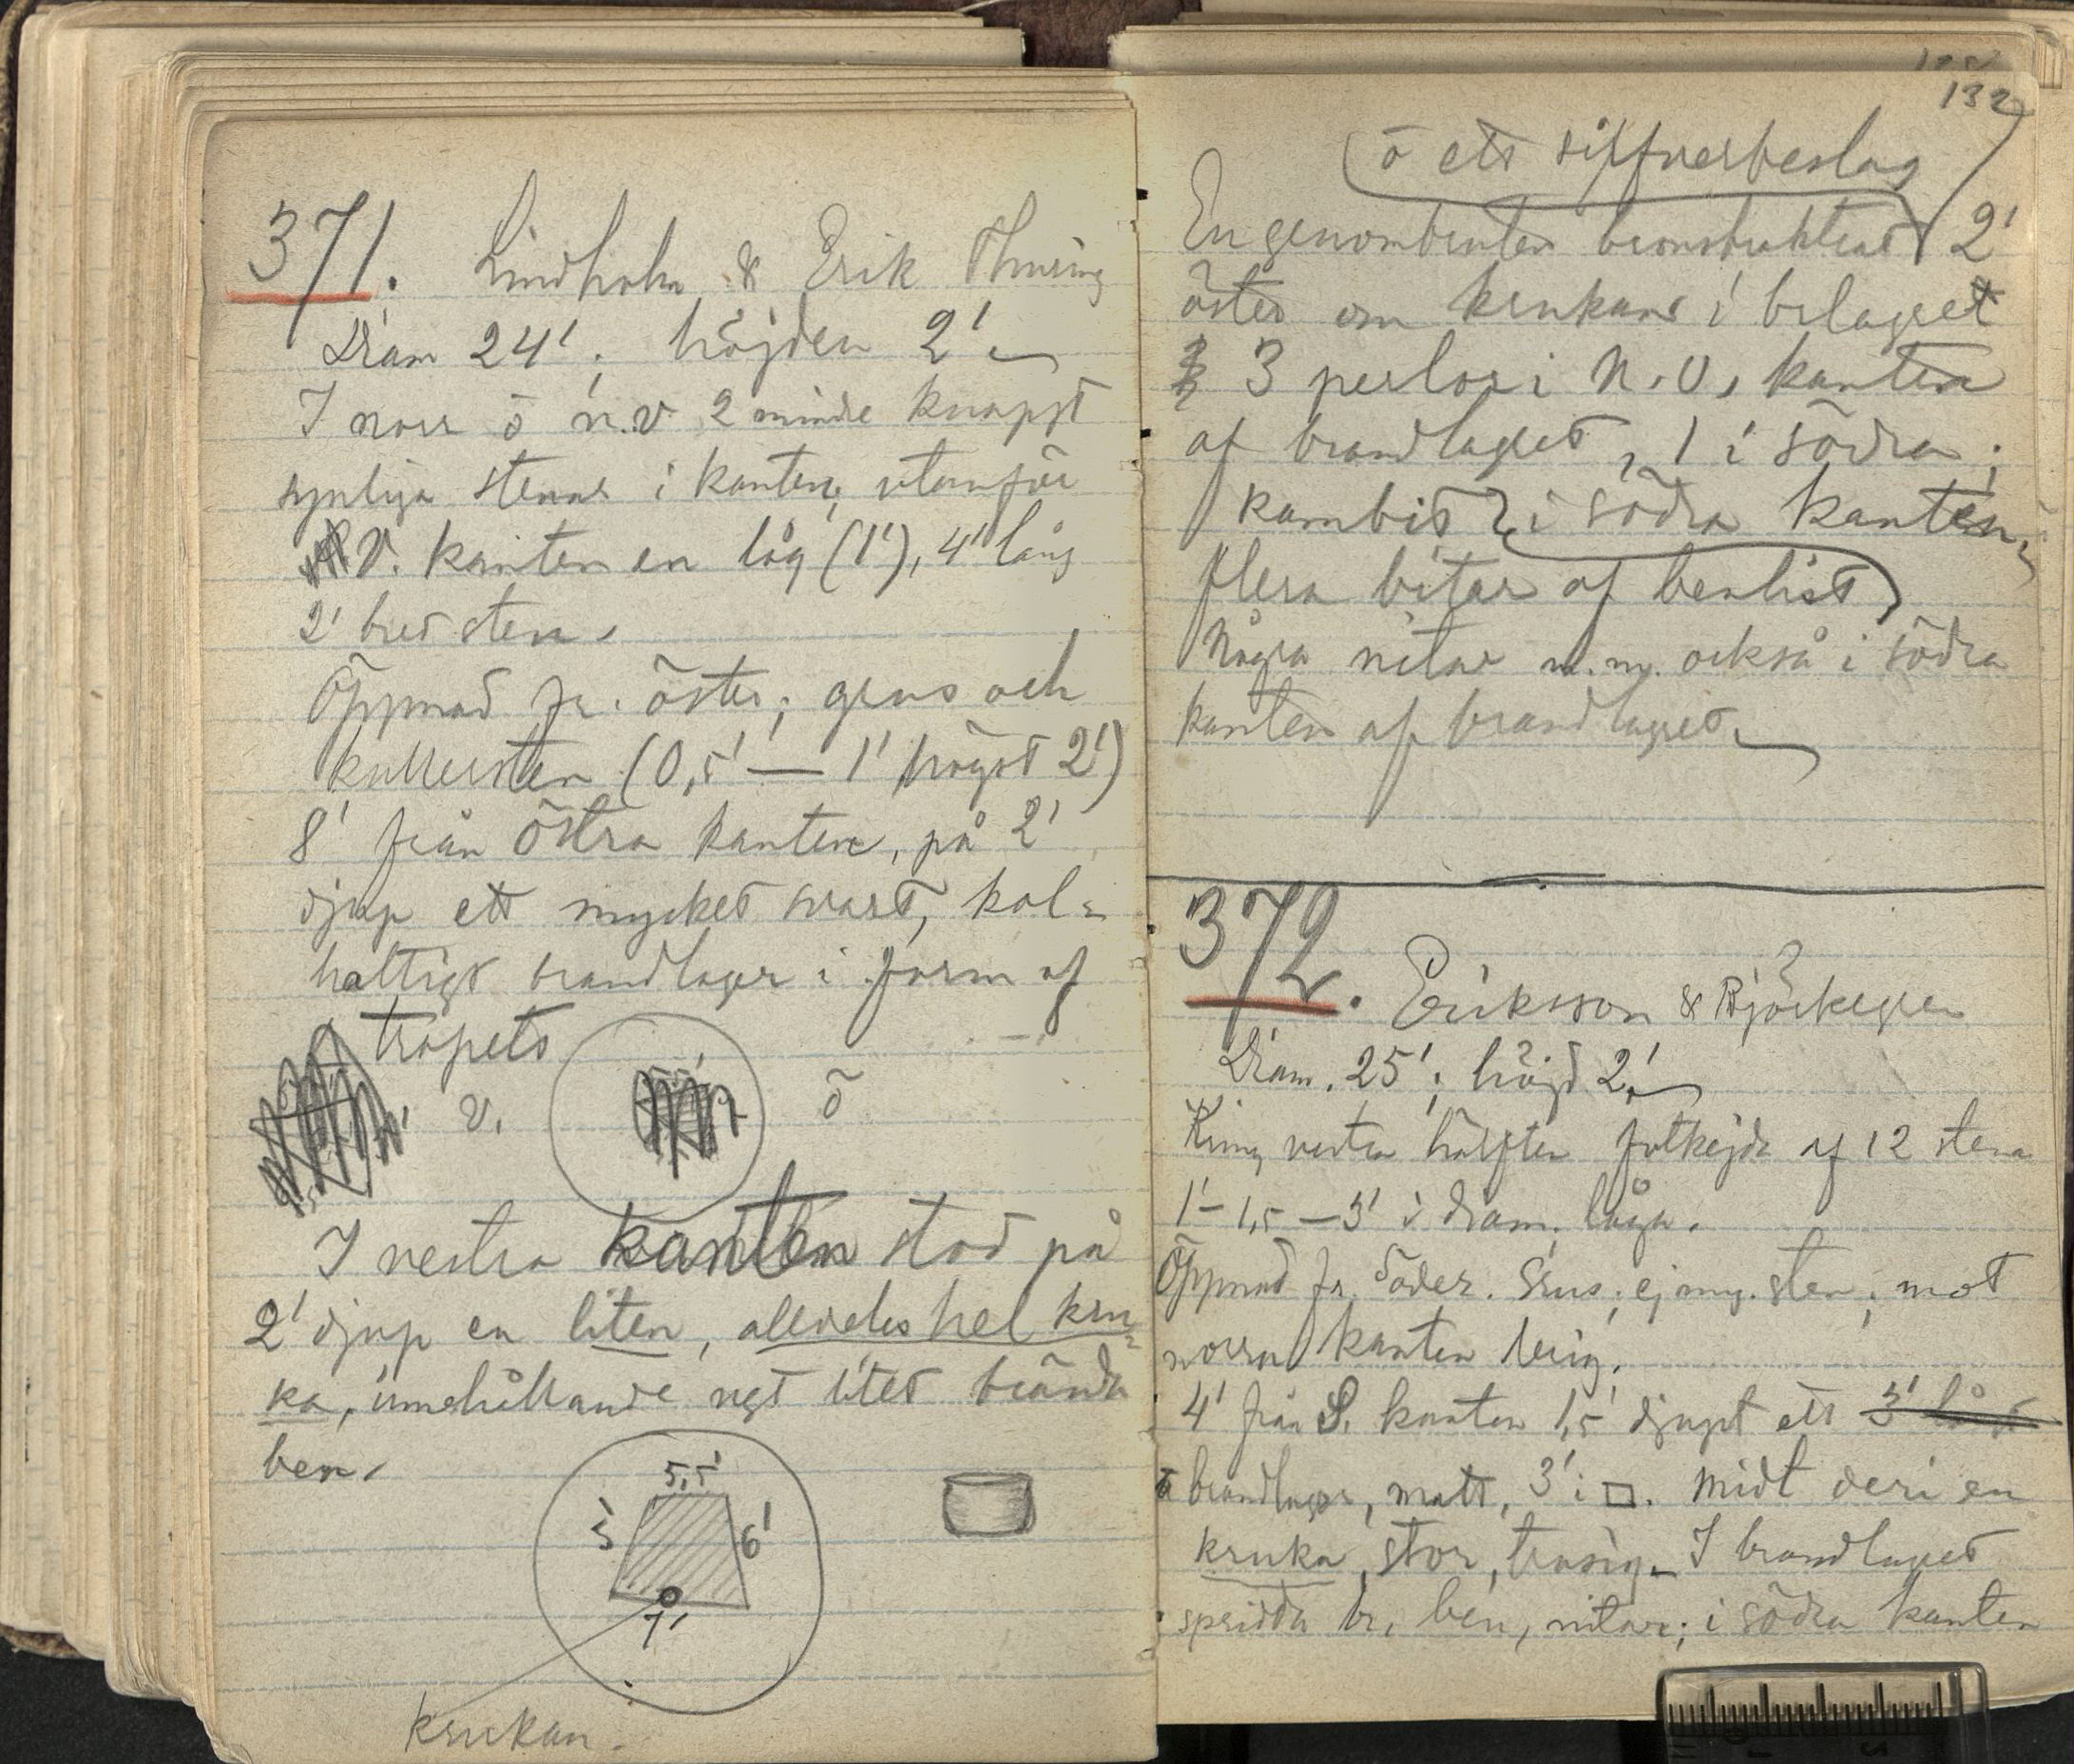 371. Lindholm & Erik Thuring
Diam 24'; höjden 2'.
I norr ō n.v 2 mindre knapst
synliga stenar i kanten, utanför
V. kanten en låg (1'), 4' lång
2' bred sten.
Öppnad fr. öster; grus och
kullersten (0,5' — 1' högst 2')
8' från östra kanten, på 2'
djup ett mycket svart, kol-
haltigt brandlager i form af
trapets
v. ō
I vestra kanten stod på
2' djup en liten, alldeles hel kru-
ka, innehållande ngt litet brända
ben.
5,5'
5' 6'
7'
krukan.
132
ō ett silfverbeslag
En genombruten bronsbukt 2'
öster om krukan i brlagret
3 perlor i N.O. kanten
af brandlagret, 1 i södra;
kambit i södra kanten,
flera bitar af benlist,
Några nitar m.m. också i södra
kanten af brandlagret.
372. Eriksson & Björkegren
Diam. 25'; höjd 2'.
Kring vestra hälften fotkejda af 12 stena
1'– 1,5 – 3' i diam; låga.
Öppnad fr. Söder. Grus; ej my. sten; mot
norra kanten lerig.
4' från S. kanten 1,5' djupt ett 3'
brandlager, matt, 3' i □. Midt deri en
kruka, stor, trasig. I brandlagret
spridda br. ben, nitar; i södra kanten